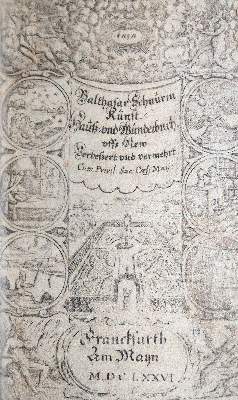 Balthasar Schnurrn
Kunst
Hauß und Wunderbuch
uffs New
Verbessert und vermehrt
Cum Privil. Sac. Cæs. May.
Franckfurth
Am Mayn
M. DC LXXVI